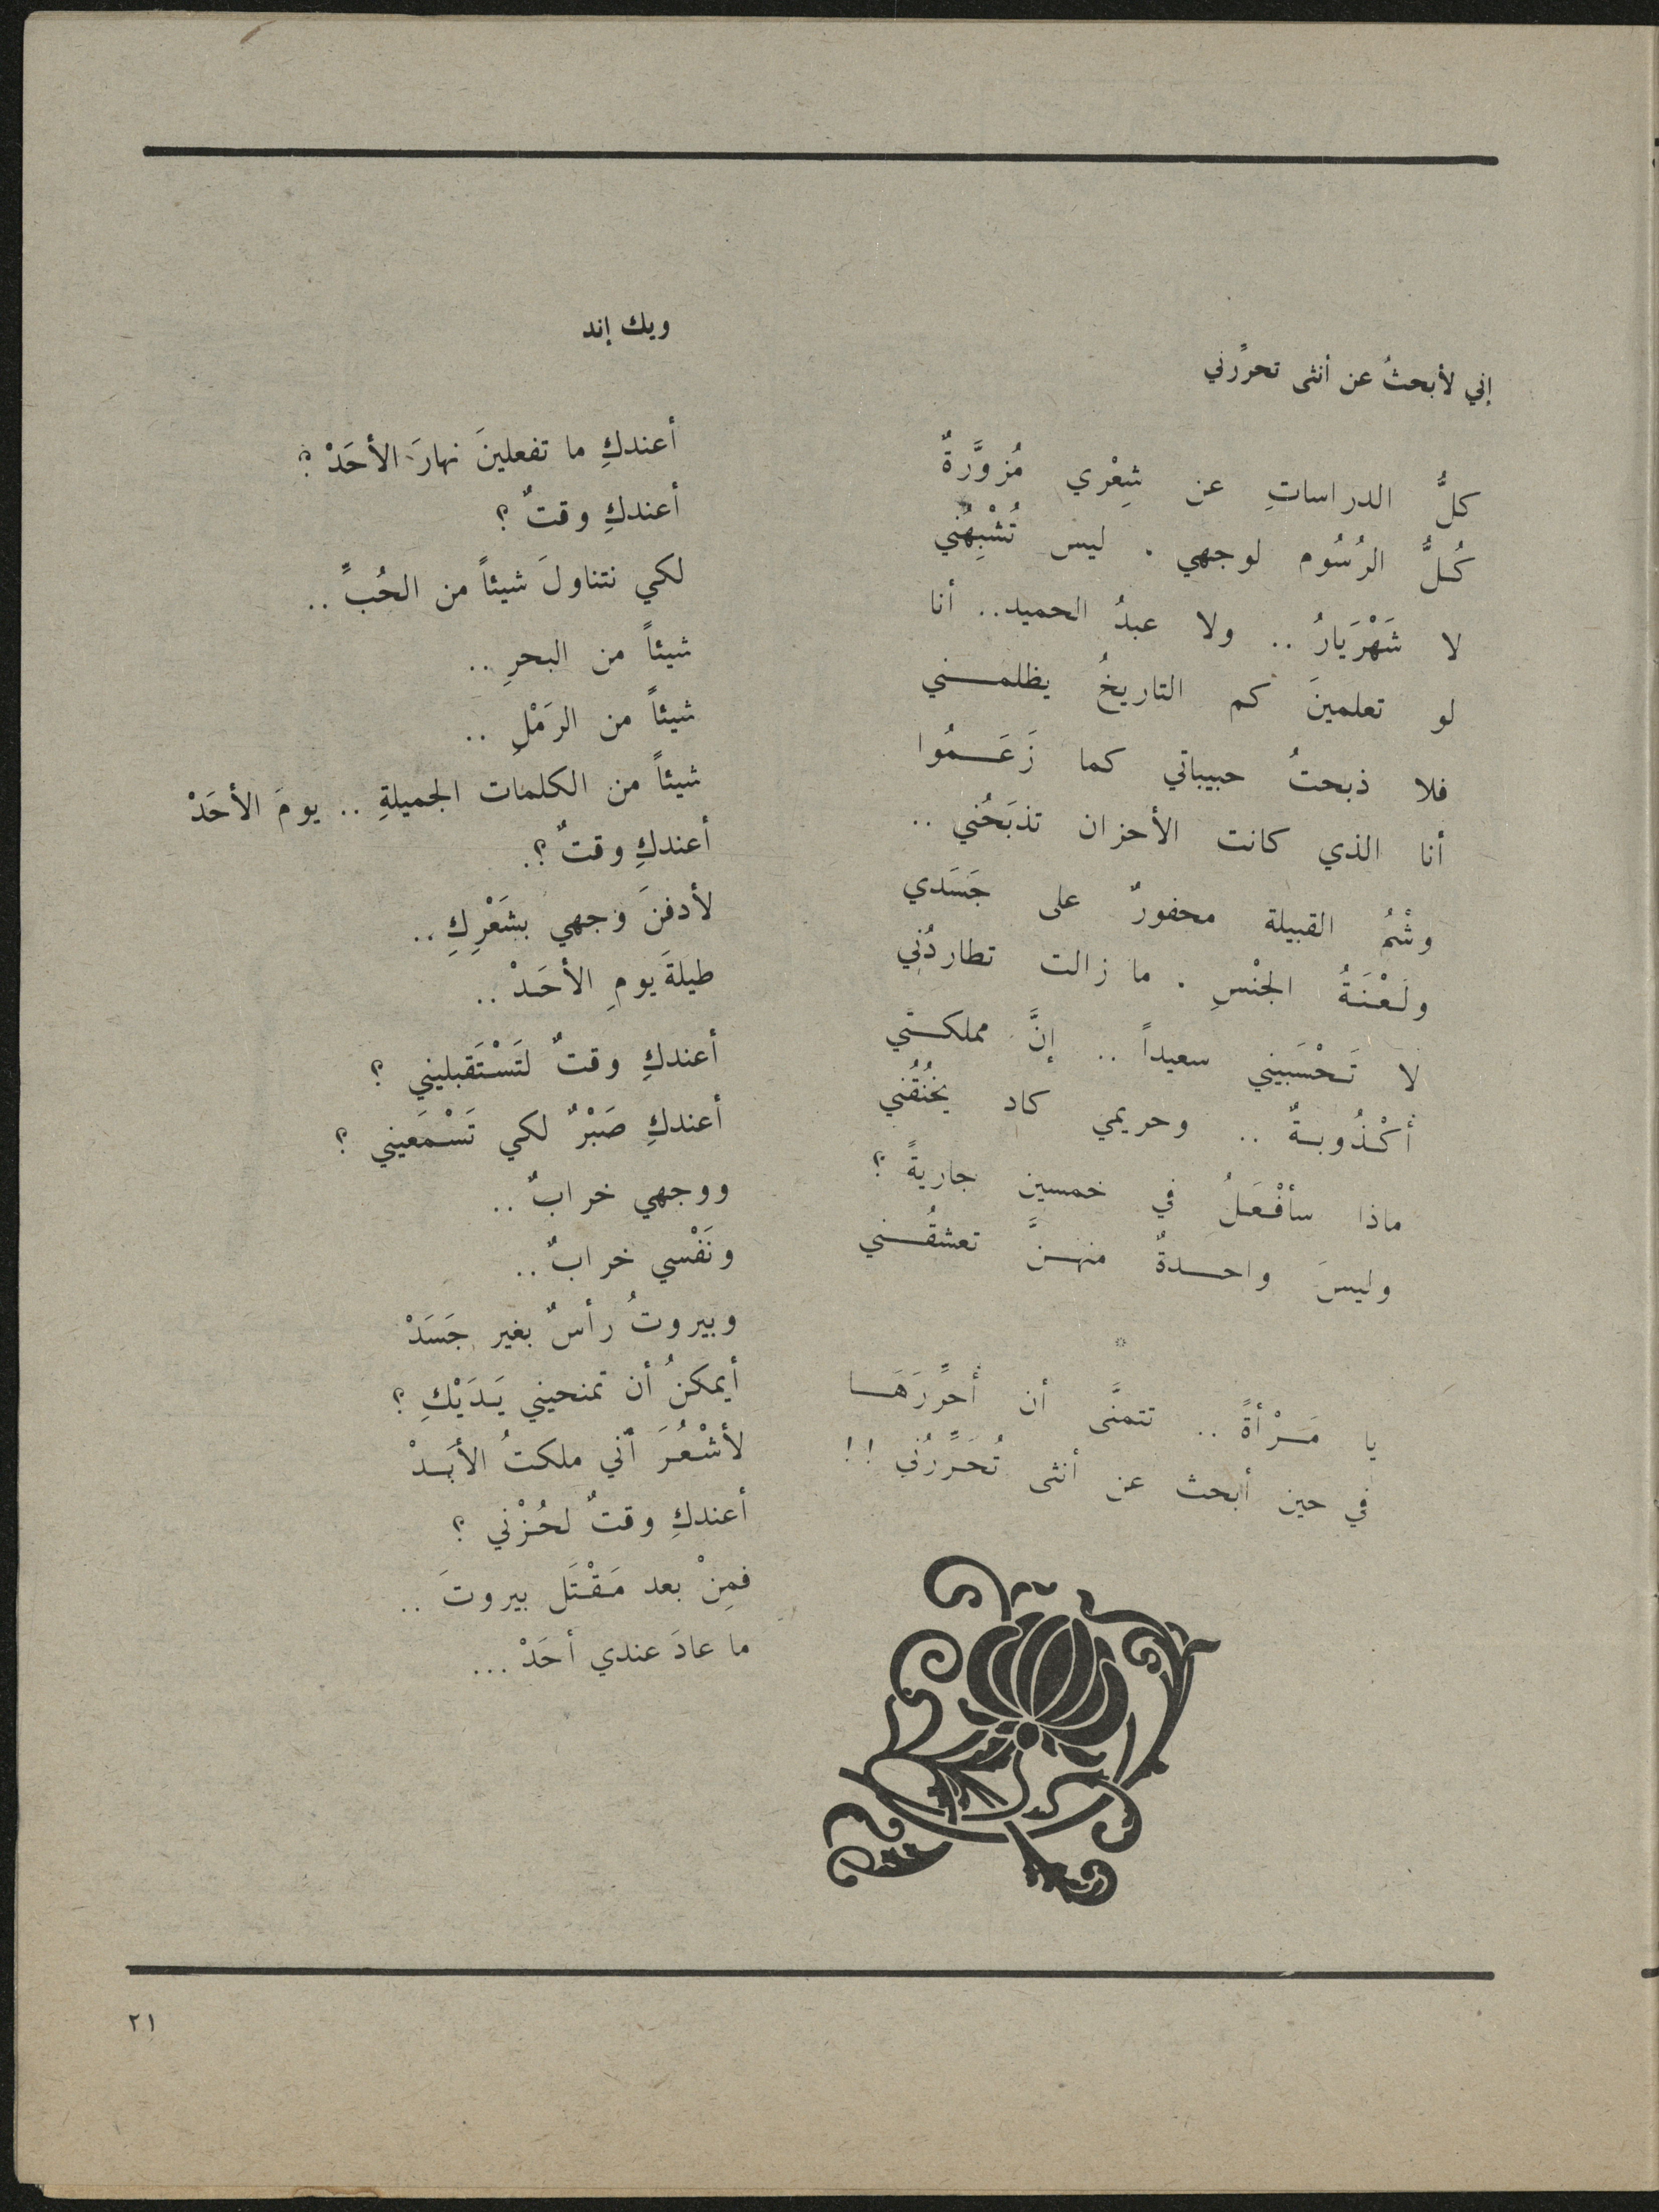 إني لأبحثُ عن أنثى تحرِّرني
كلُّ الدراساتِ عن شِعْري مُزوَّرةٌ
كُلُّ الرُسُوم لوجهي . ليس تُشْبِهُني
لا شَهْرَيارُ .. ولا عبدُ الحميد .. أنا
لو تعلمينَ كم التاريخُ يظلمــني
فلا ذبحتُ حبيباتي كما زَعَــمُوا
أنا الذي كانت الأحزان تذبَحُني ..
وشْمُ القبيلة محفورٌ على جَسَدي
ولَعْنَةُ الجِنْسِ . ما زالت تطاردُني
لا تَحْسَبيني سعيداً .. إنَّ مملكـتي
أكْذُوبـةٌ .. وحريمي كاد يخْنُقُني
ماذا سأفْعَلُ في خمسين جاريةً ؟
وليسَ واحــدةٌ منهـنَّ تعشقُــني
*
يا مَـرْأةً .. تتمنَّى أن أُحرِّرَهَــا
في حين أبحث عن أنثى تُحَرِّرُني !!
ويك إند
أعندكِ ما تفعلينَ نهارَ الأحَدْ ؟
أعندكِ وقتٌ ؟
لكي نتناولَ شيئاً من الحُبِّ ..
شيئاً من البحرِ ..
شيئاً من الرَمْلِ ..
شيئاً من الكلمات الجميلةِ .. يومَ الأحَدْ
أعندكِ وقتٌ ؟.
لأدفنَ وجهي بشَعْرِكِ ..
طيلةَ يومِ الأحَدْ ..
أعندكِ وقتٌ لتَسْتَقبليني ؟
أعندكِ صَبْرٌ لكي تَسْمَعيني ؟
ووجهي خرابٌ ..
ونَفْسي خرابٌ ..
وبيروتُ رأسٌ بغير جَسَدْ
أيمكنُ أن تمنحيني يَدَيْكِ ؟
لأشْعُرَ أني ملكتُ الأبَـدْ
أعندكِ وقتٌ لحُزْني ؟
فمِنْ بعد مَقْتَل بيروتَ ..
ما عادَ عندي أحَدْ ...
٢١